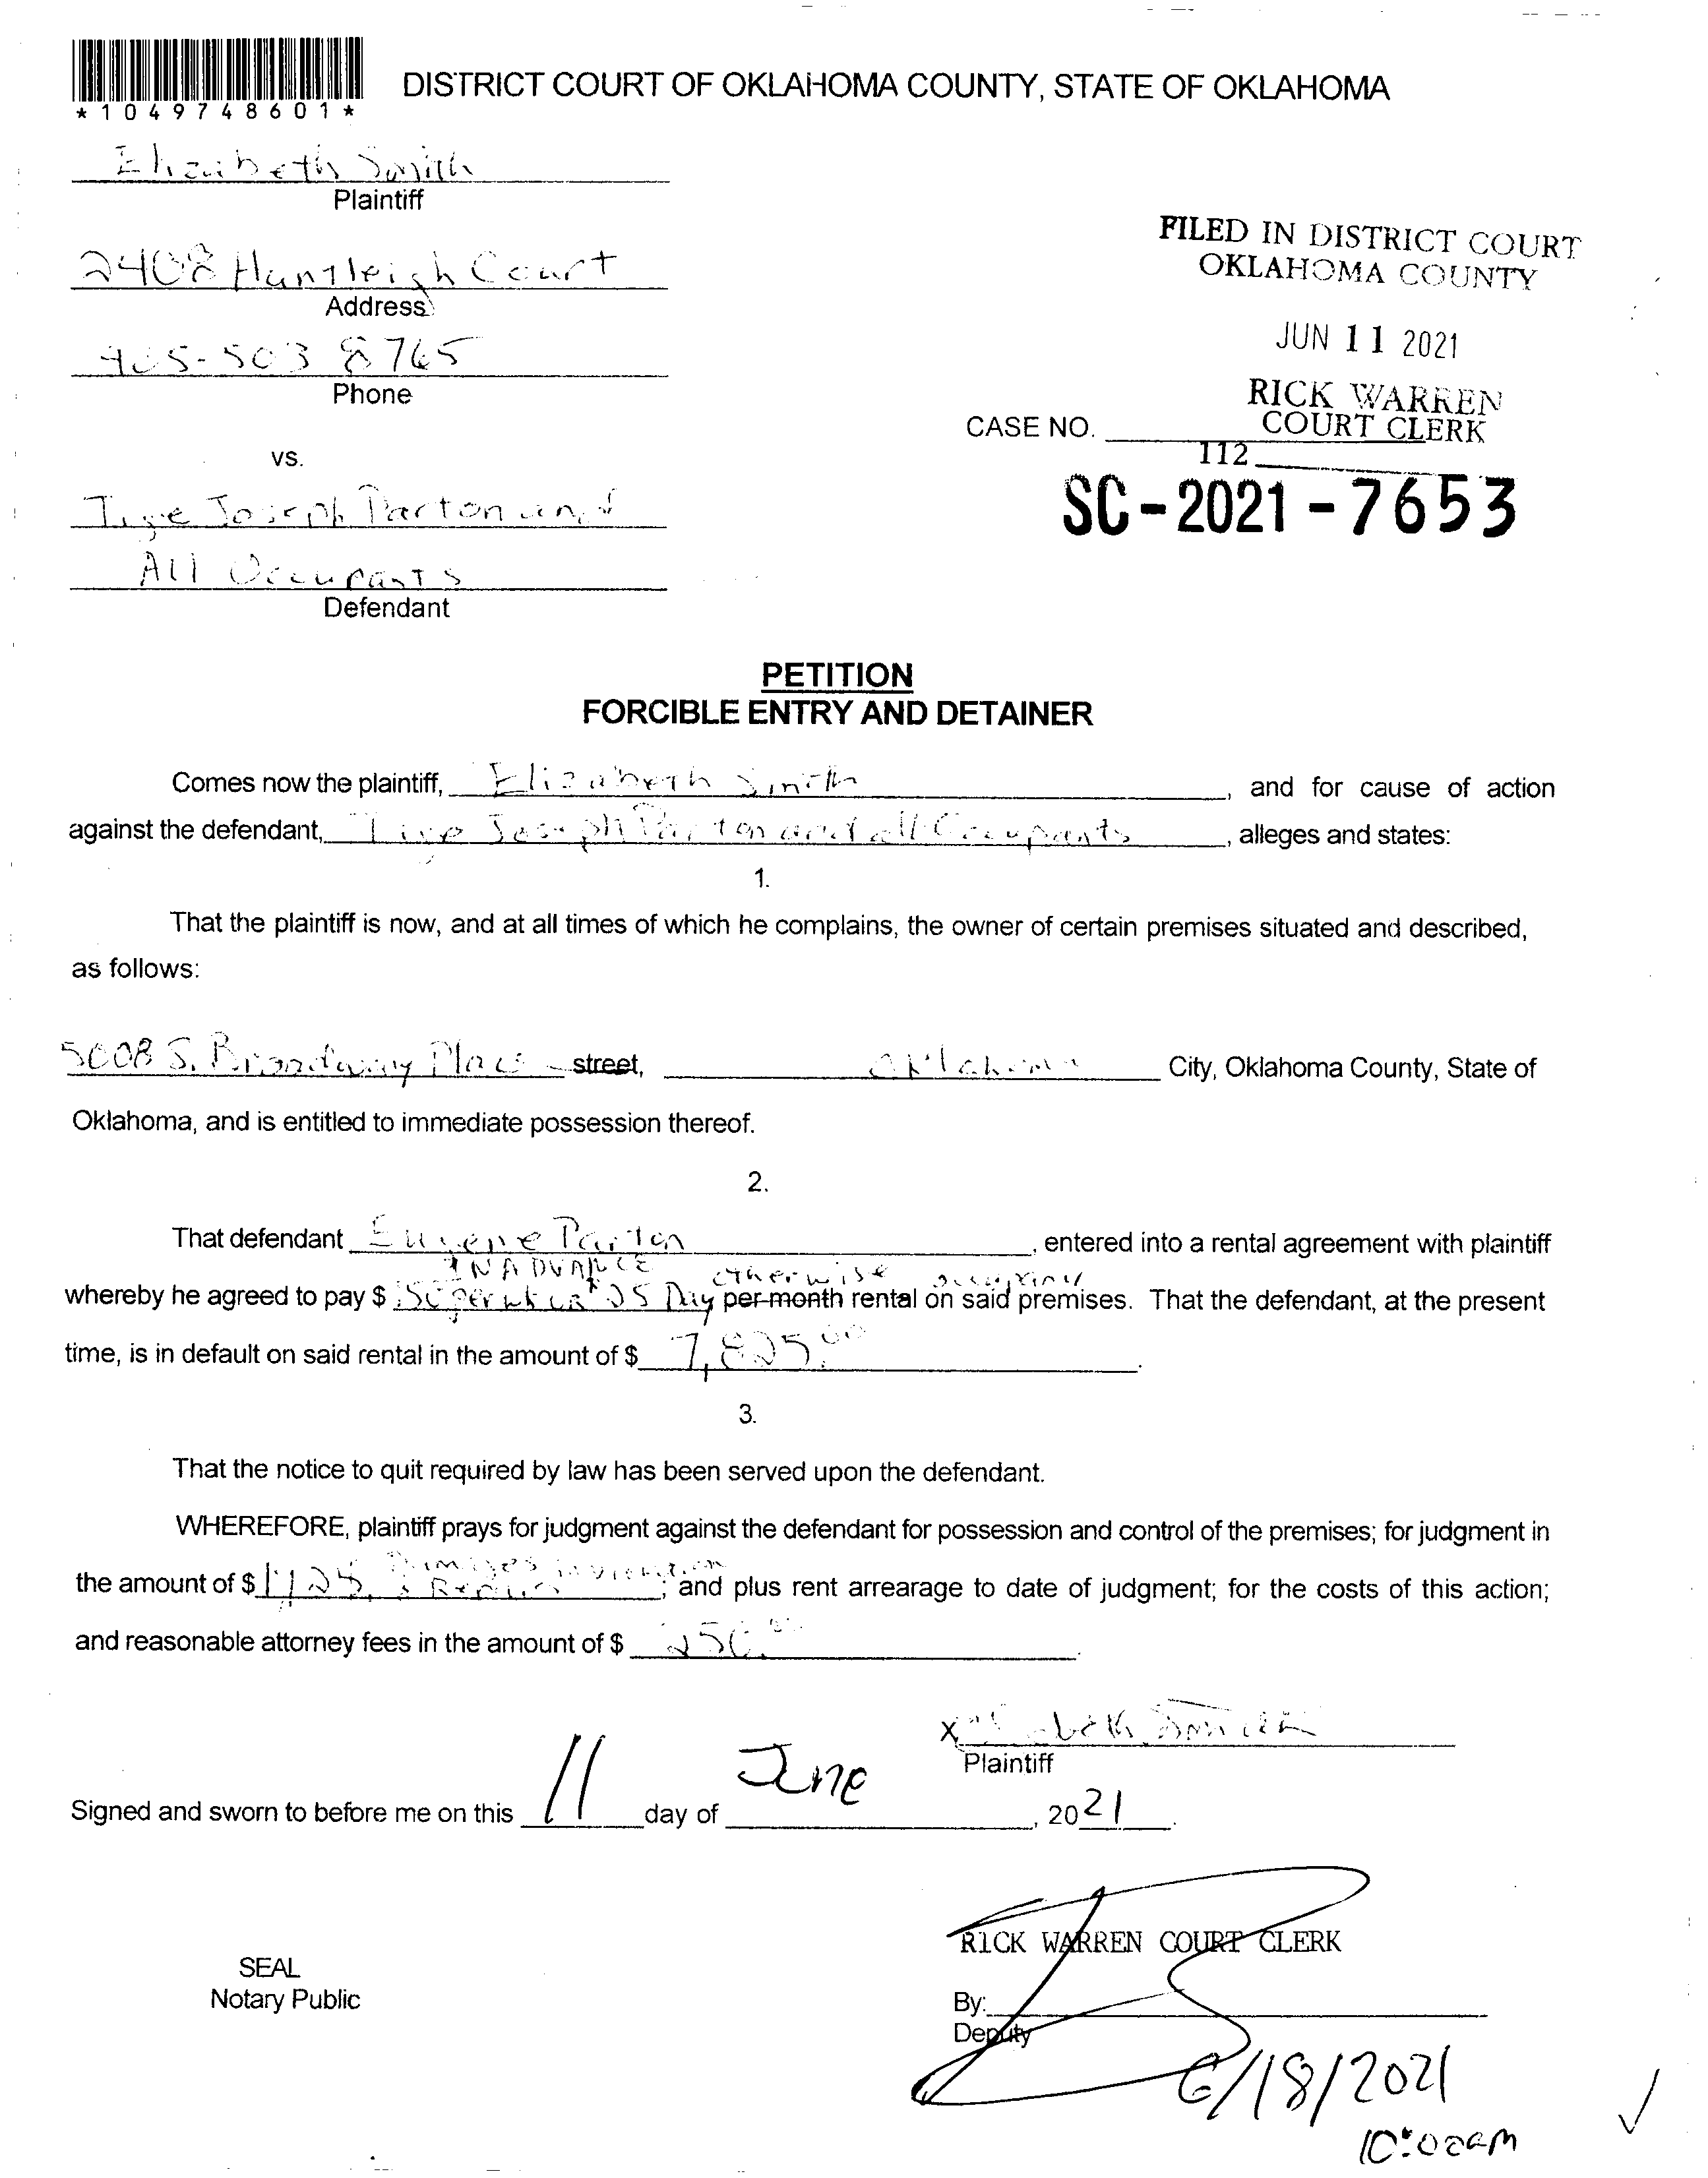 *1049748601*
DISTRICT COURT OF OKLAHOMA COUNTY, STATE OF OKLAHOMA
Elizabeth Smith
Plaintiff
2408 Huntleigh Court
Address
405-503 8765
Phone
vs.
Joseph Parton and
All Occupants
Defendant
FILED IN DISTRICT COURT
OKLAHOMA COUNTY
JUN 11 2021
RICK WARREN
COURT CLERK
CASE NO.
112
SC-2021-7653
PETITION
FORCIBLE ENTRY AND DETAINER
Comes now the plaintiff, Elizabeth Smith, and for cause of action
against the defendant, Joseph Parton and all Occupants, alleges and states:
1.
That the plaintiff is now, and at all times of which he complains, the owner of certain premises situated and described,
as follows:
5008 S. Broadway Place street, Oklahoma City, Oklahoma County, State of
Oklahoma, and is entitled to immediate possession thereof.
2.
That defendant Eugene Parton, entered into a rental agreement with plaintiff
IN ADVANCE otherwise
whereby he agreed to pay $ per wk or 25 Day per month rental on said premises. That the defendant, at the present
time, is in default on said rental in the amount of $ 7,825.00.
3.
That the notice to quit required by law has been served upon the defendant.
WHEREFORE, plaintiff prays for judgment against the defendant for possession and control of the premises; for judgment in
the amount of $ ; and plus rent arrearage to date of judgment; for the costs of this action;
and reasonable attorney fees in the amount of $ 250.00.
x Elizabeth Smith
Plaintiff
Signed and sworn to before me on this 11 day of June, 2021.
RICK WARREN COURT CLERK
SEAL
Notary Public
By:
Deputy
6/18/2021
10:00am